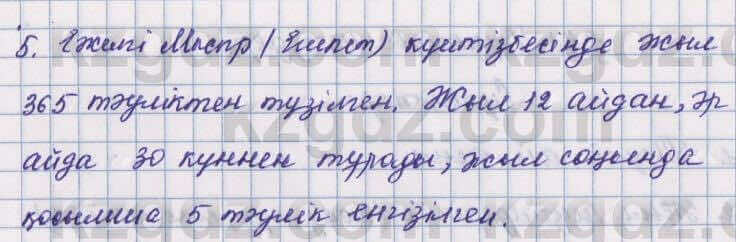 5. Ежелгі Мысыр (Египет) күнтізбесінде жыл
365 тәуліктен түзілген. Жыл 12 айдан, әр
айда 30 күннен тұрады, жыл соңында
қосымша 5 тәулік енгізілген.
kzgdz.com